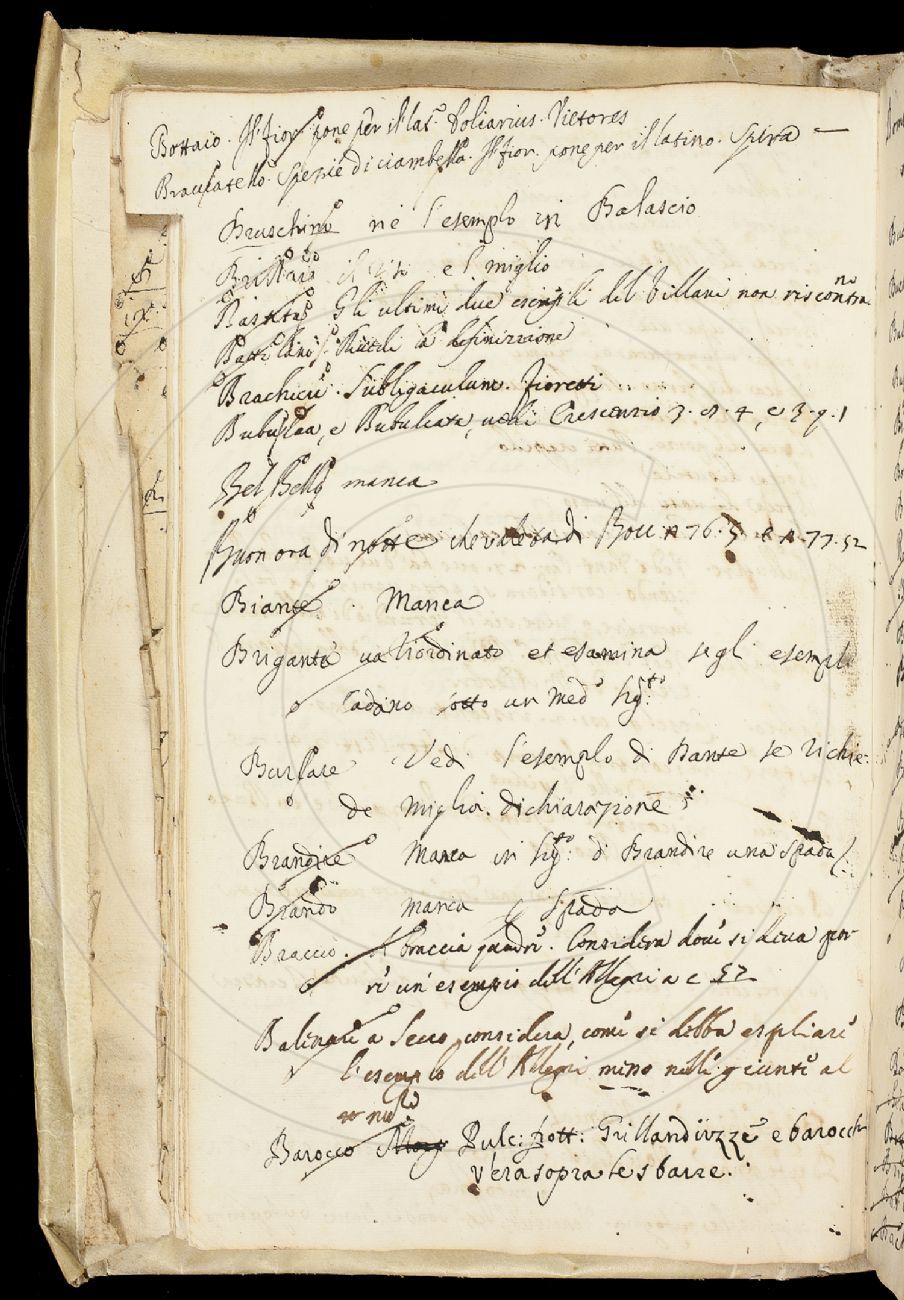 Bottaio. Il fior pone per il lat.° Doliarius. Vietores
Braciatello. Spezie di ciambella. Il fior. pone per il latino. Spira —
Bruschino ne l'esempio in Balascio
il e l miglio
Bastita Gli ultimi due esempli del Villani non riscontrano
la definizione
Brachiere. Subligaculum. fioretti ..
e Bubulcata, vedi Crescenzio 3. 8. 4, e 3. 7. 1
Bel Bello manca
Buon ora di notte che vale ora di Bocc. n 76. 5 e n. 77. 52
Biante. Manca
Brigante va riordinato et esamina se gli esempli
cadano sotto un med.° sig.to
Burlare Vedi l'esemplo di Dante se richie-
de miglior. dichiarazione
Brandire Manca in sig.to di Brandire una spada
Brando manca p spada
Braccio. braccia quadre. Considera dove si deva por
re un'esempio dell'Allegri a c 57
Balenare a secco, considera, come si debba espliare
l'esemplo dell'Allegri mino nelle giunte al
Barocco Pulc: Grillanduzze e barocch
vera sopra le sbarre.